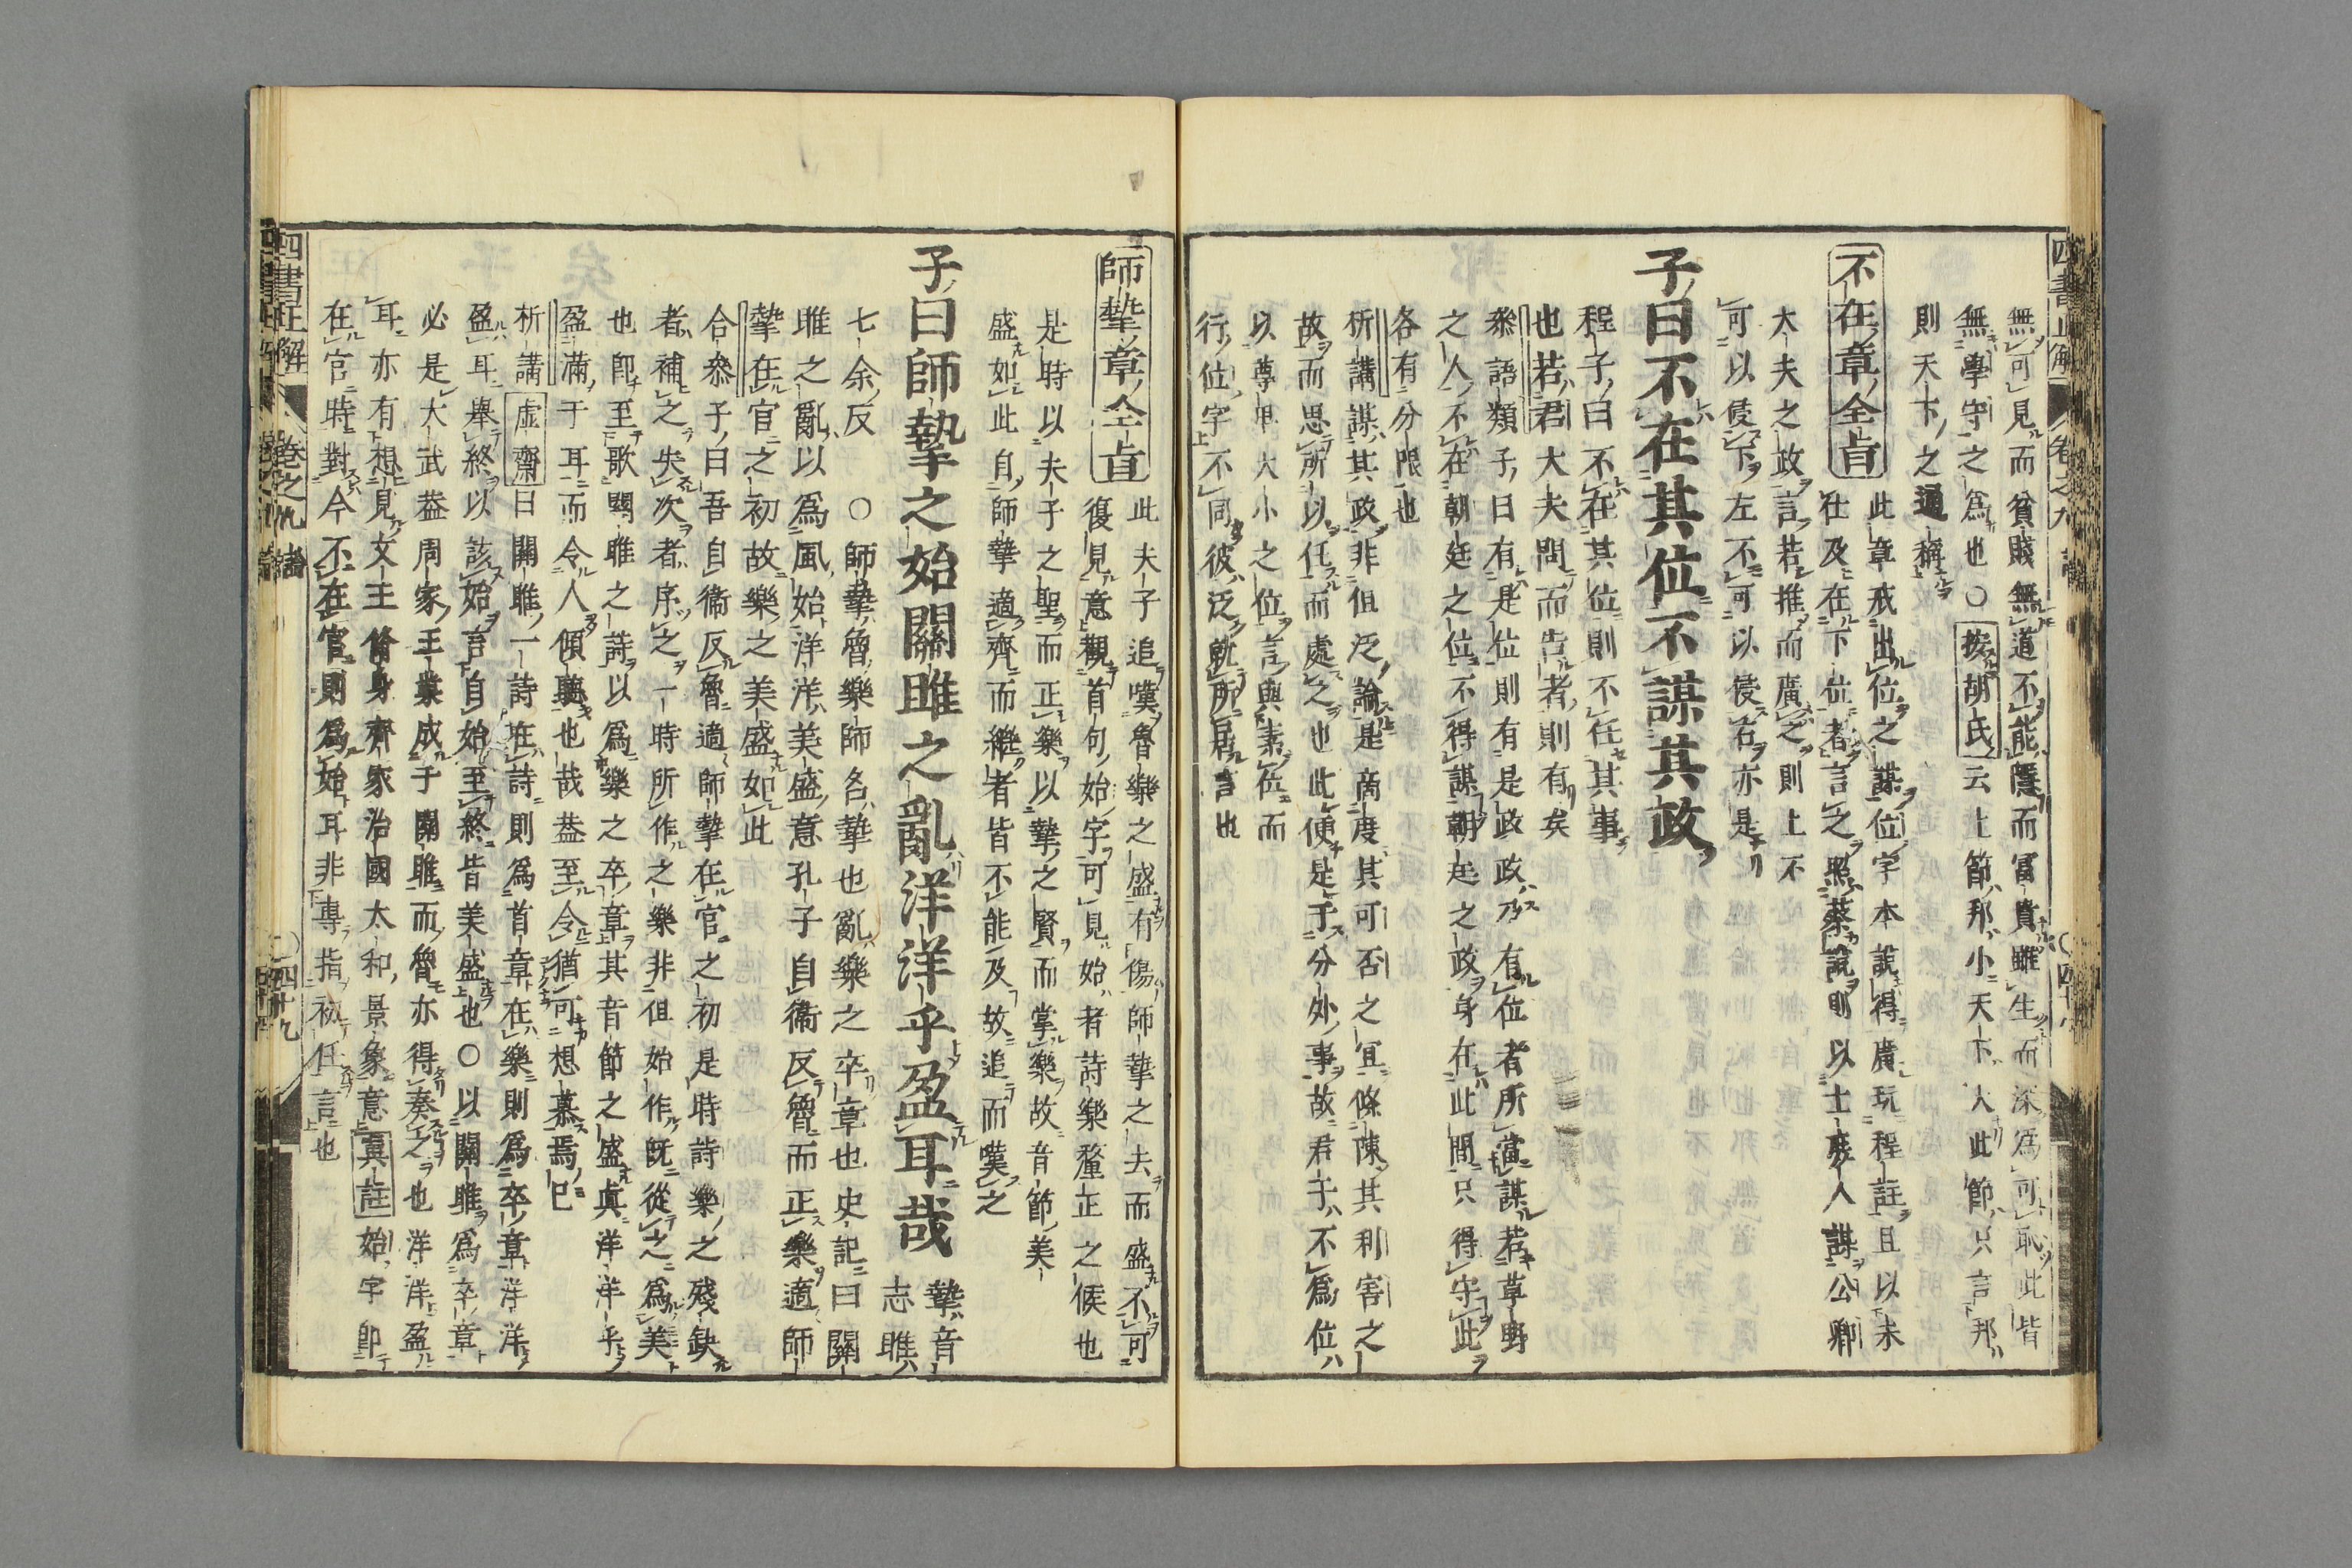 無可見而貧賤無道不能隱而富貴雖生而深爲可耻此皆
無學守之爲也○按胡氏云上節邦小天下大此節只言邦
則天下之通稱
不在章全旨 此章戒出位之謀位字本説得廣玩程註且以未
仕及在下位者言之照蔡説則以士庶人謀公卿
大夫之政言若推而廣之則上不
可以侵下左不可以侵右亦是
子曰不在其位不謀其政
程子曰不在其位則不任其事
也若君大夫問而告者則有矣
叅語類子曰有是位則有是政政乃有位者所當謀若草野
之人不在朝廷之位不得謀朝廷之政身在此間只得守此
各有分限也
析講謀其政非但泛論是商度其可否之宜條陳其利害之
故而思所以任而處之也此便是于分外事故君子不爲位
以尊卑大小之位言與素位而
行位字不同彼泛就所居言也
師摯章全旨 此夫子追嘆魯樂之盛有傷師摯之去而盛不可
復見意觀首句始字可見始者詩樂釐正之候也
是時以夫子之聖而正樂以摯之賢而掌樂故音節美
盛如此自師摯適齊而繼者皆不能及故追而嘆之
子曰師摯之始關雎之亂洋洋乎盈耳哉 摯音
志雎
七余反 ○師摯魯樂師名摯也亂樂之卒章也史記曰關
雎之亂以爲風始洋洋美盛意孔子自衞反魯而正樂適師
摯在官之初故樂之美盛如此
合叅子曰吾自衞反魯適師摯在官之初是時詩樂之殘缺
者補之失次者序之一時所作之樂非但始作既從之爲美
也卽至歌關雎之詩以爲樂之卒章其音節之盛眞洋洋乎
盈滿于耳而令人傾聽也哉葢至令猶可想慕焉已
析講虛齋曰關雎一詩在詩則爲首章在樂則爲卒章洋洋
盈耳舉終以該始言自始至終皆美盛也○以關雎爲卒章
必是大武葢周家王業成于關雎而魯亦得奏之也洋洋盈
耳亦有想見文王脩身齊家治國太和景象意眞註始字卽
在官時對今不在官則爲始耳非專指初任言也
四書正解 卷之九 論 四十九